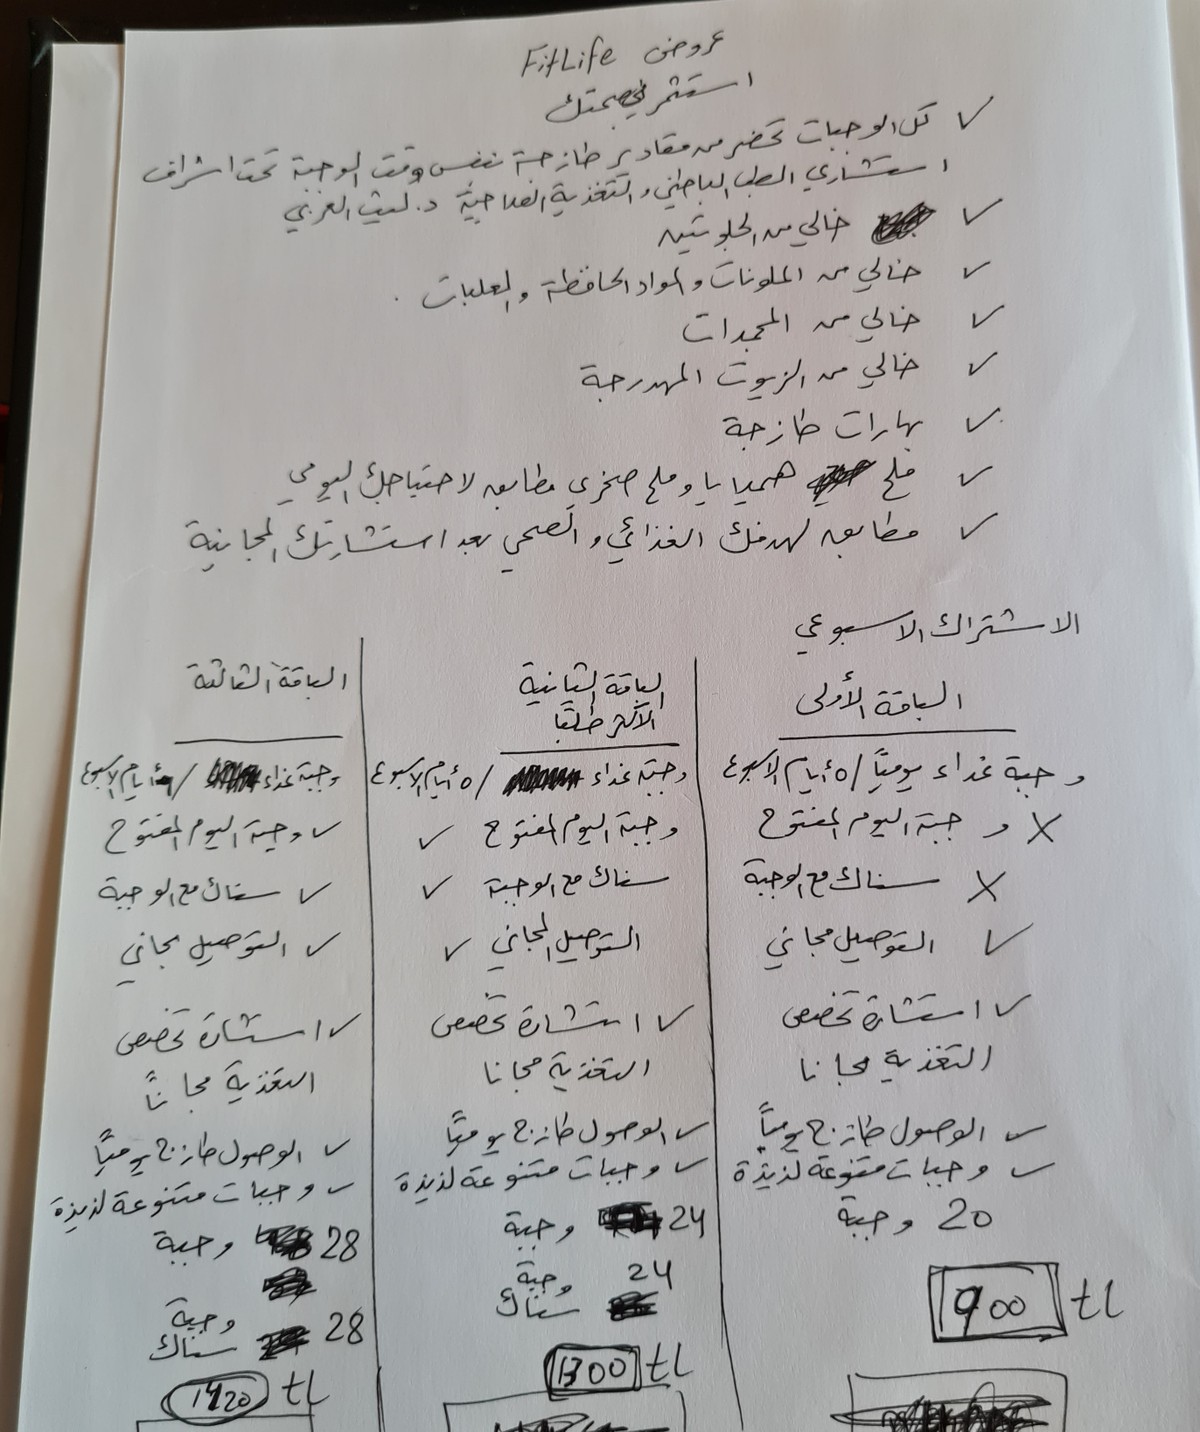 عروض FitLife
استثمر في صحتك
✓ كل الوجبات تحضر من مقادير طازجة بنفس وقت الوجبة تحت اشراف
استشاري الطب الباطني والتغذية العلاجية د. ليث العزبي
✓ خالي من الجلوتين
✓ خالي من الملونات والمواد الحافظة والمعلبات.
✓ خالي من المجمدات
✓ خالي من الزيوت المهدرجة
✓ بهارات طازجة
✓ ملح هملايا وملح صخري مطابق لاحتياجك اليومي
✓ مطابق لهدفك الغذائي والصحي بعد استشارتك المجانية
الاشتراك الاسبوعي
الباقة الأولى
وجبة غداء يومياً / ٥ أيام الاسبوع
X وجبة اليوم المفتوح
X سناك مع الوجبة
✓ التوصيل مجاني
✓ استشارة تخصص
التغذية مجانا
✓ الوصول طازج يومياً
✓ وجبات متنوعة لذيذة
20 وجبة
900 tl
الباقة الثانية
الأكثر طلبًا
وجبة غداء / ٥ أيام الاسبوع
وجبة اليوم المفتوح ✓
سناك مع الوجبة ✓
التوصيل المجاني ✓
✓ استشارة تخصص
التغذية مجانا
✓ الوصول طازج يومياً
✓ وجبات متنوعة لذيذة
24 وجبة
24 وجبة
سناك
1300 tl
الباقة الثالثة
وجبة غداء / أيام الاسبوع
✓ وجبة اليوم المفتوح
✓ سناك مع الوجبة
✓ التوصيل مجاني
✓ استشارة تخصص
التغذية مجاناً
✓ الوصول طازج يومياً
✓ وجبات متنوعة لذيذة
28 وجبة
28 وجبة
سناك
tl